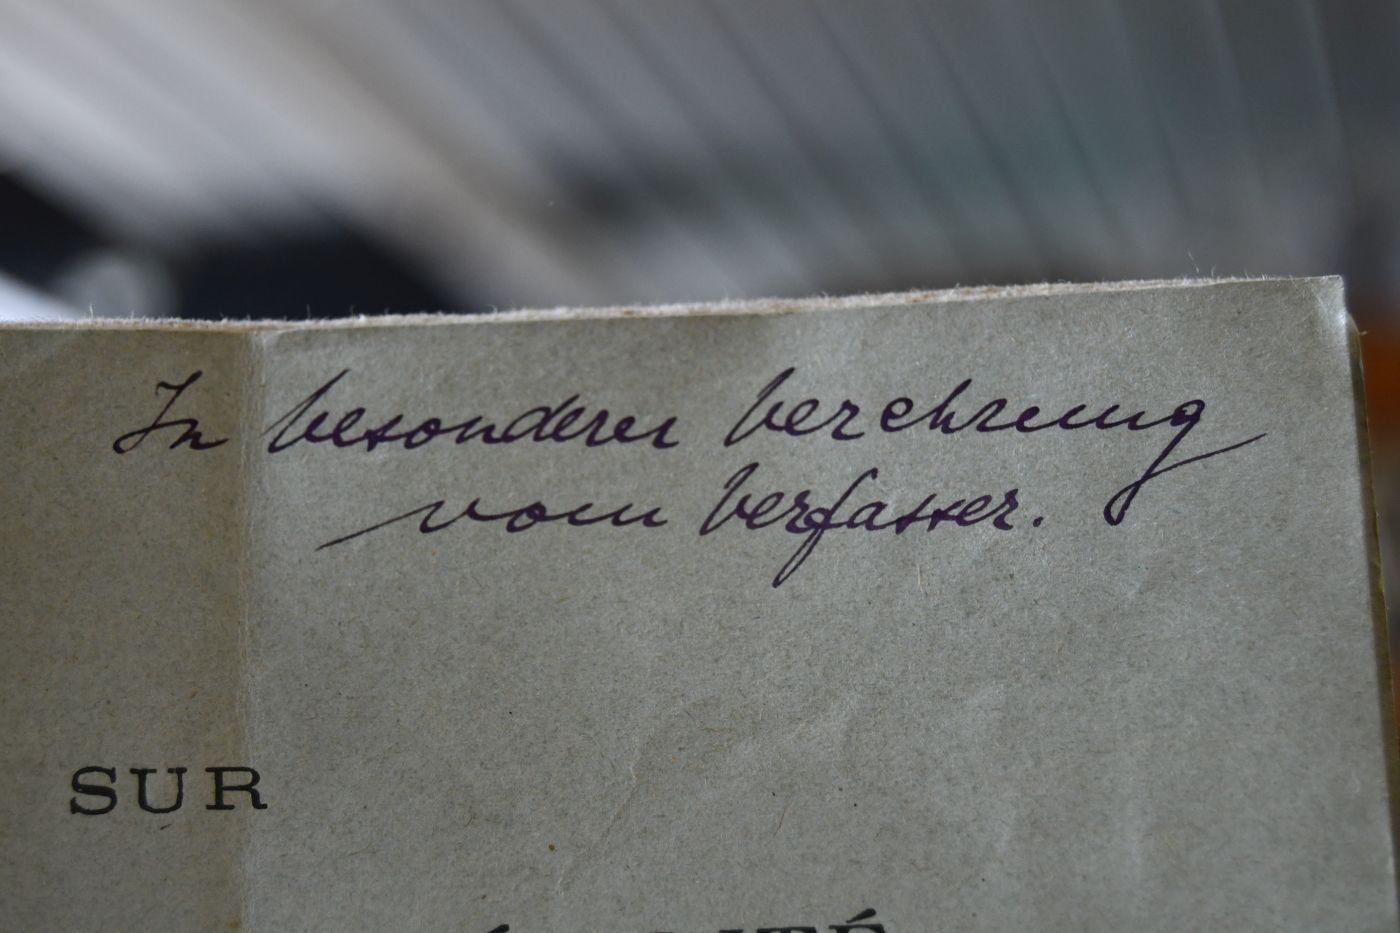 In besonderer Verehrung
vom Verfasser.
SUR